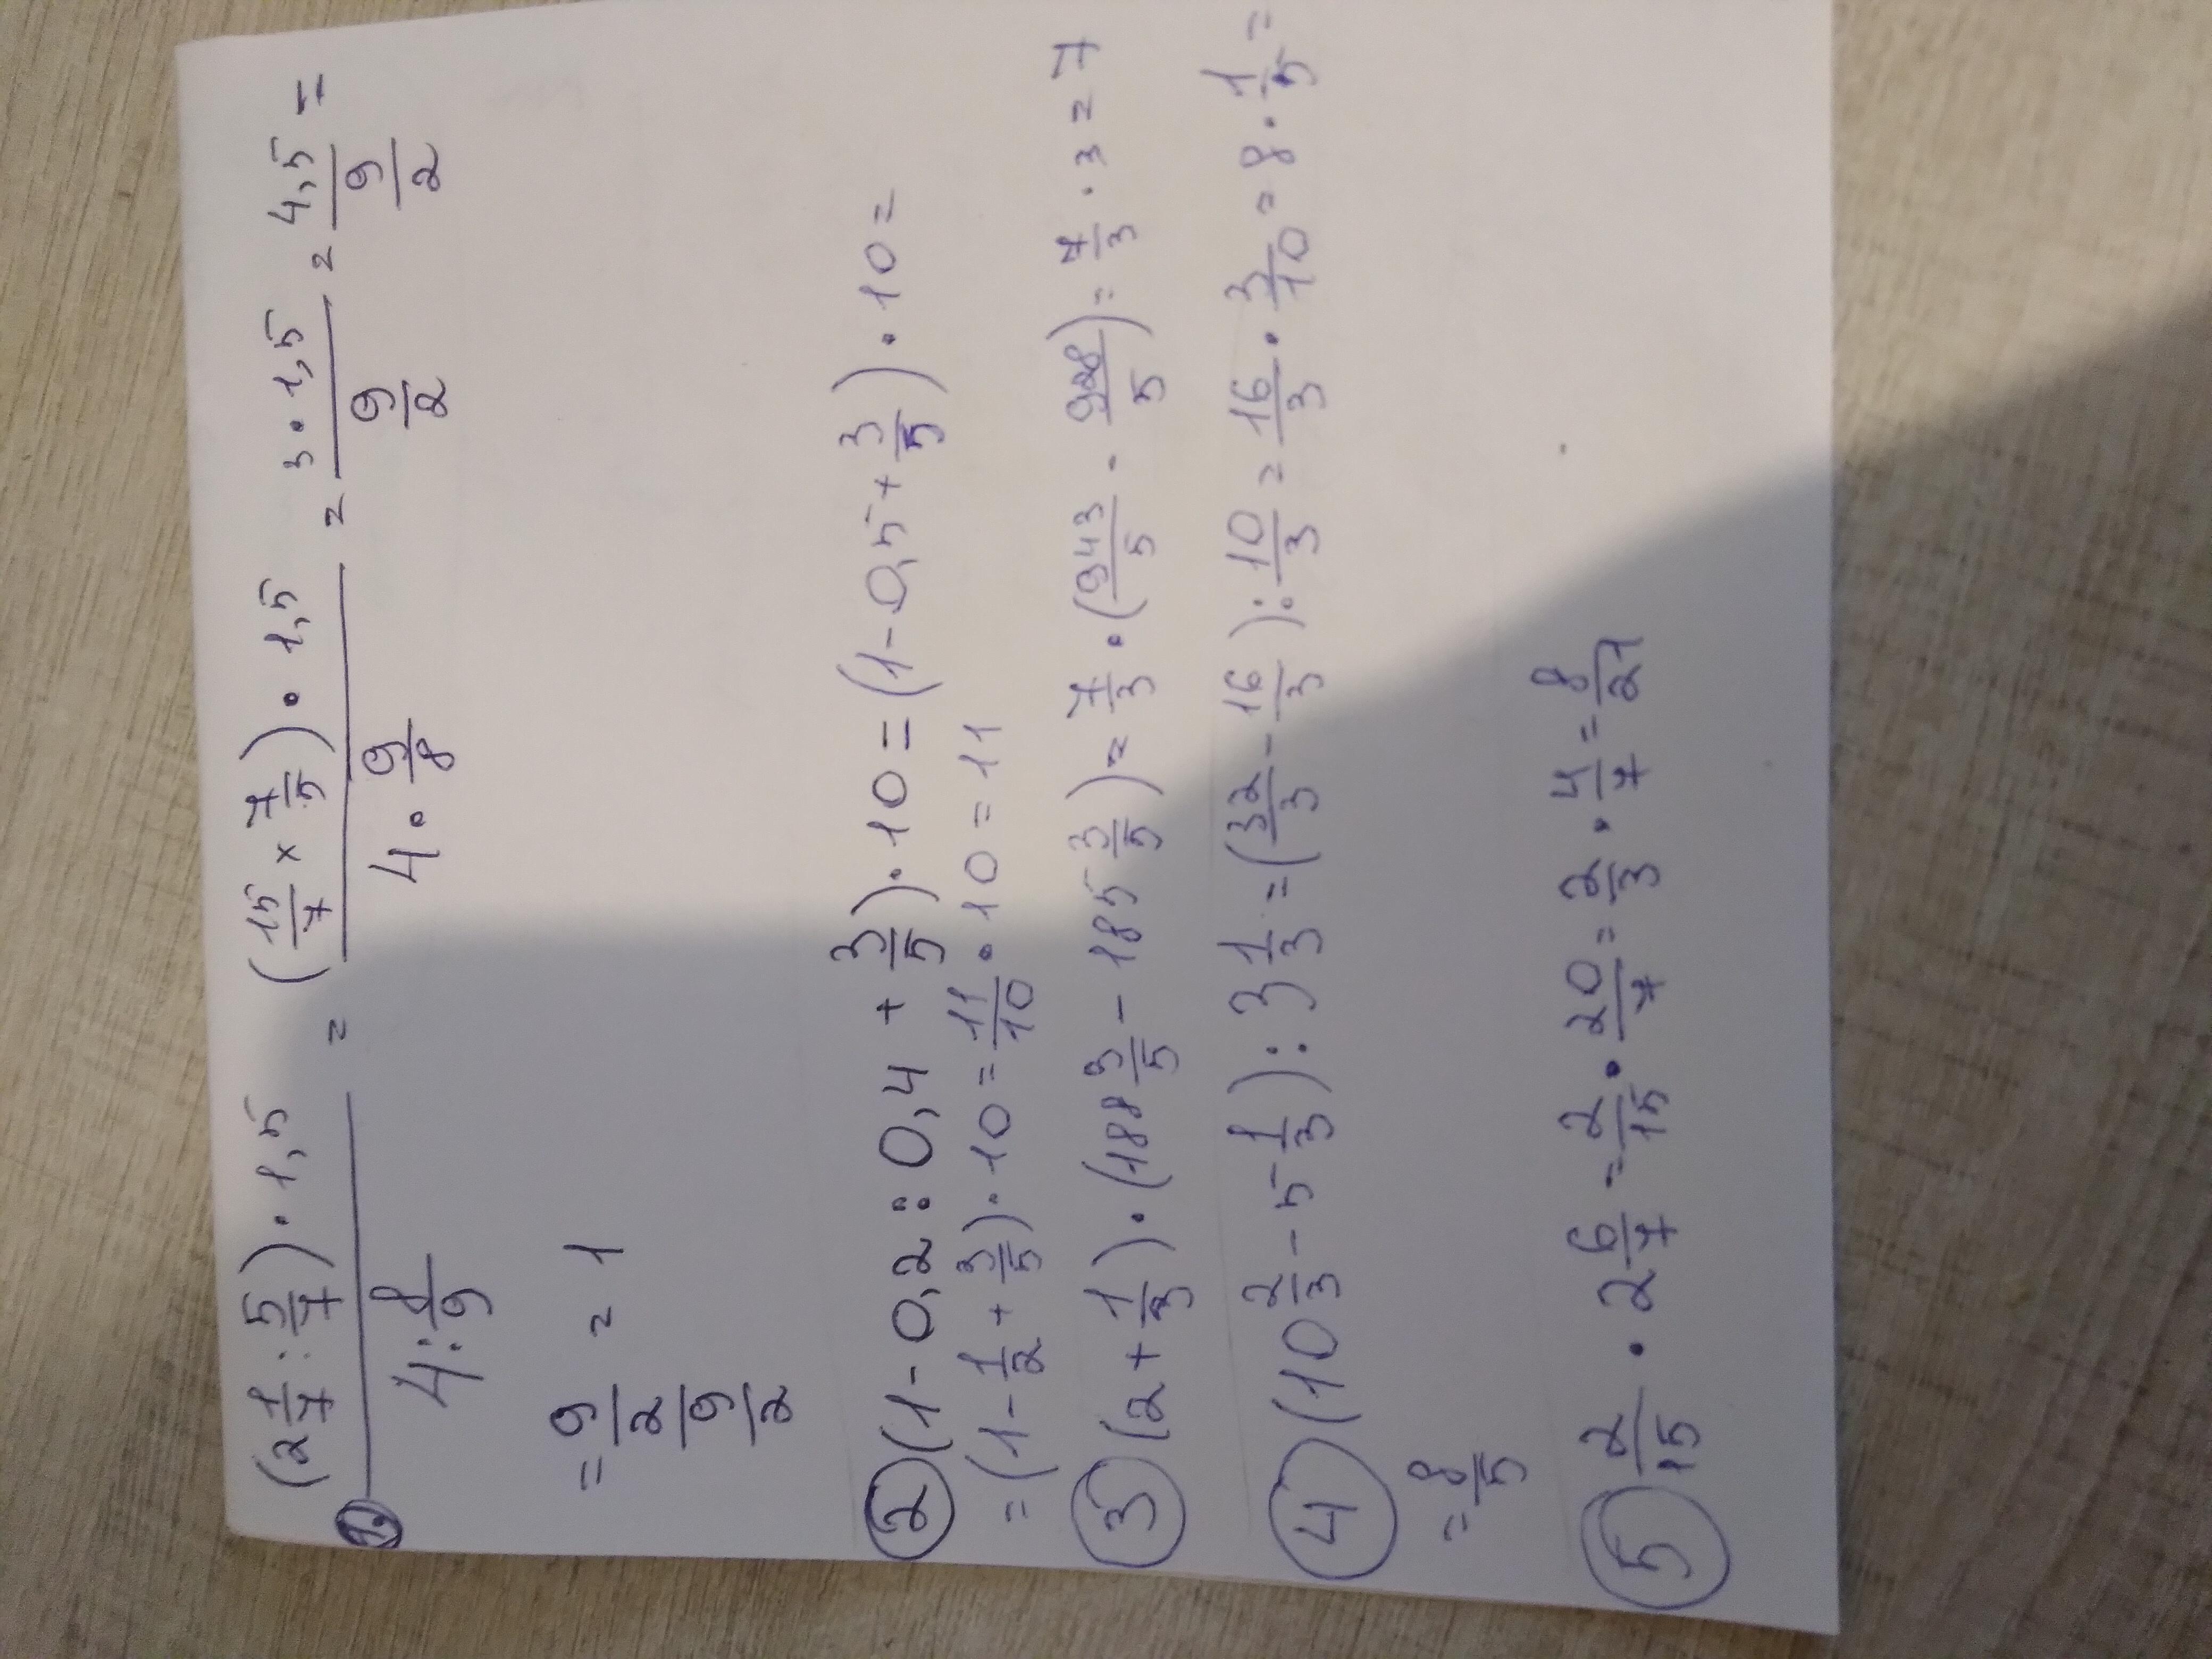 1.) ((2 1/7 : 5/7) · 1,5)/(4 : 8/9) = ((15/7 × 7/5) · 1,5)/(4 · 9/8) = (3 · 1,5)/(9/2) = 4,5/(9/2) =
= (9/2)/(9/2) = 1
2) (1 - 0,2 : 0,4 + 3/5) · 10 = (1 - 0,5 + 3/5) · 10 =
= (1 - 1/2 + 3/5) · 10 = 11/10 · 10 = 11
3) (2 + 1/3) · (188 3/5 - 185 3/5) = 7/3 · (943/5 - 928/5) = 7/3 · 3 = 7
4) (10 2/3 - 5 1/3) : 3 1/3 = (32/3 - 16/3) : 10/3 = 16/3 · 3/10 = 8 · 1/5 =
= 8/5
5) 2/15 · 2 6/7 = 2/15 · 20/7 = 2/3 · 4/7 = 8/21